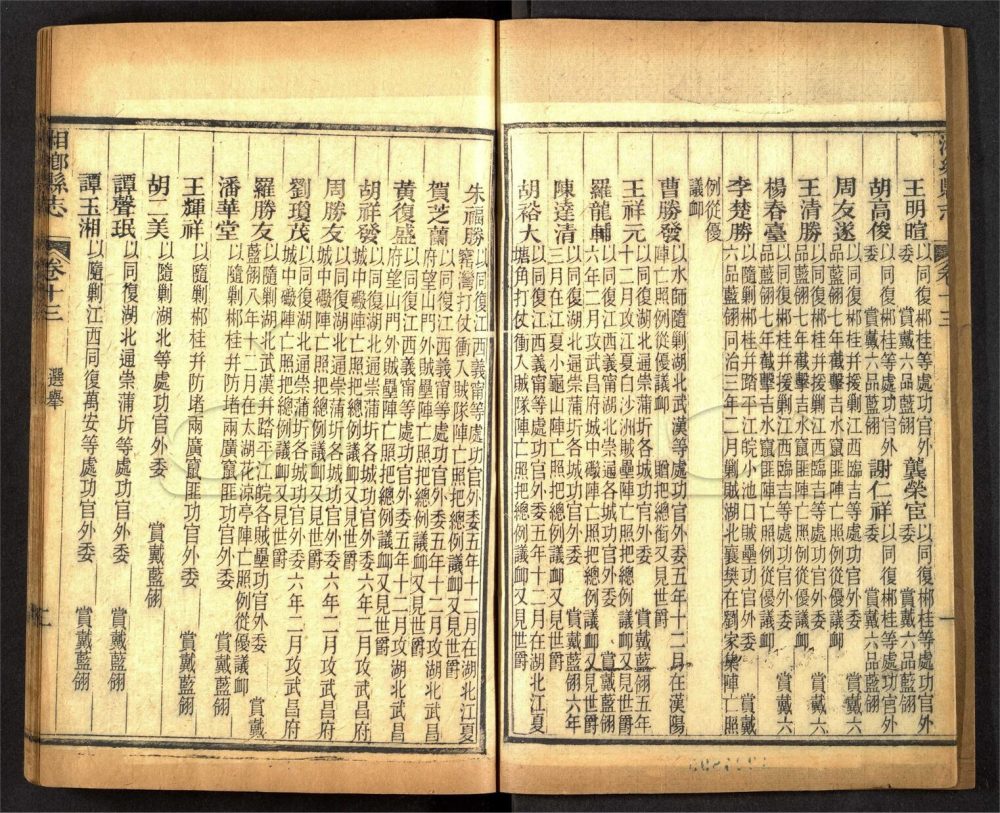 王明暄以同復郴桂等處功官外委 賞戴六品藍翎 龔榮宦以同復郴桂等處功官外委 賞戴六品藍翎
胡高俊以同復郴桂等處功官外委 賞戴六品藍翎 謝仁祥以同復郴桂等處功官外委 賞戴六品藍翎
周友遂以同復郴桂并援剿江西臨吉等處功官外委 賞戴六品藍翎七年截擊吉水竄匪陣亡照例從優議卹
王清勝以同復郴桂并援剿江西臨吉等處功官外委 賞戴六品藍翎七年截擊吉水竄匪陣亡照例從優議卹
楊春臺以同復郴桂并援剿江西臨吉等處功官外委 賞戴六品藍翎七年截擊吉水竄匪陣亡照例從優議卹
李楚勝以隨剿郴桂并踏平江皖小池口賊壘功官外委 賞戴六品藍翎同治三年二月剿賊湖北襄樊在劉家集陣亡照
例從優議卹
曹勝發以水師隨剿湖北武漢等處功官外委五年十二月在漢陽陣亡照例從優議卹 贈把總銜又見世爵
王祥元以同復湖北通崇蒲圻各城功官外委 賞戴藍翎五年十二月攻江夏白沙洲賊壘陣亡照把總例議卹又見世爵
羅龍輔以同復湖北通崇蒲圻各城功官外委 賞戴藍翎六年六年二月攻武昌府城中礮陣亡照把總例議卹又見世爵
陳達清以同復江西義甯湖北崇通各城功官外委 賞戴藍翎三月在江夏小龜山陣亡照把總例議卹又見世爵
胡裕大以同復江西義甯等處功官外委五年十二月在湖北江夏塘角打仗衝入賊隊陣亡照把總例議卹又見世爵
湘鄉縣志 卷十三 選舉
朱福勝以同復江西義甯等處功官外委五年十二月在湖北江夏窰灣打仗衝入賊隊陣亡照把總例議卹又見世爵
賀芝蘭以同復江西義甯等處功官外委五年十二月攻湖北武昌府望山門外賊壘陣亡照把總例議卹又見世爵
黃復盛以同復江西義甯等處功官外委五年十二月攻湖北武昌府望山門外賊壘陣亡照把總例議卹又見世爵
胡祥發以同復湖北通崇蒲圻各城功官外委六年二月攻武昌府城中礮陣亡照把總例議卹又見世爵
周勝友以同復湖北通崇蒲圻各城功官外委六年二月攻武昌府城中礮陣亡照把總例議卹又見世爵
劉瓊茂以同復湖北通崇蒲圻各城功官外委六年二月攻武昌府城中礮陣亡照把總例議卹又見世爵
羅勝友以隨剿湖北武漢并踏平江皖各賊壘功官外委 賞戴藍翎八年十二月在太湖花涼亭陣亡照例從優議卹
潘華堂以隨剿郴桂并防堵兩廣竄匪功官外委 賞戴藍翎
王輝祥以隨剿郴桂并防堵兩廣竄匪功官外委 賞戴藍翎
胡二美以隨剿湖北等處功官外委 賞戴藍翎
譚聲珉以同復湖北通崇蒲圻等處功官外委 賞戴藍翎
譚玉湘以隨剿江西同復萬安等處功官外委 賞戴藍翎